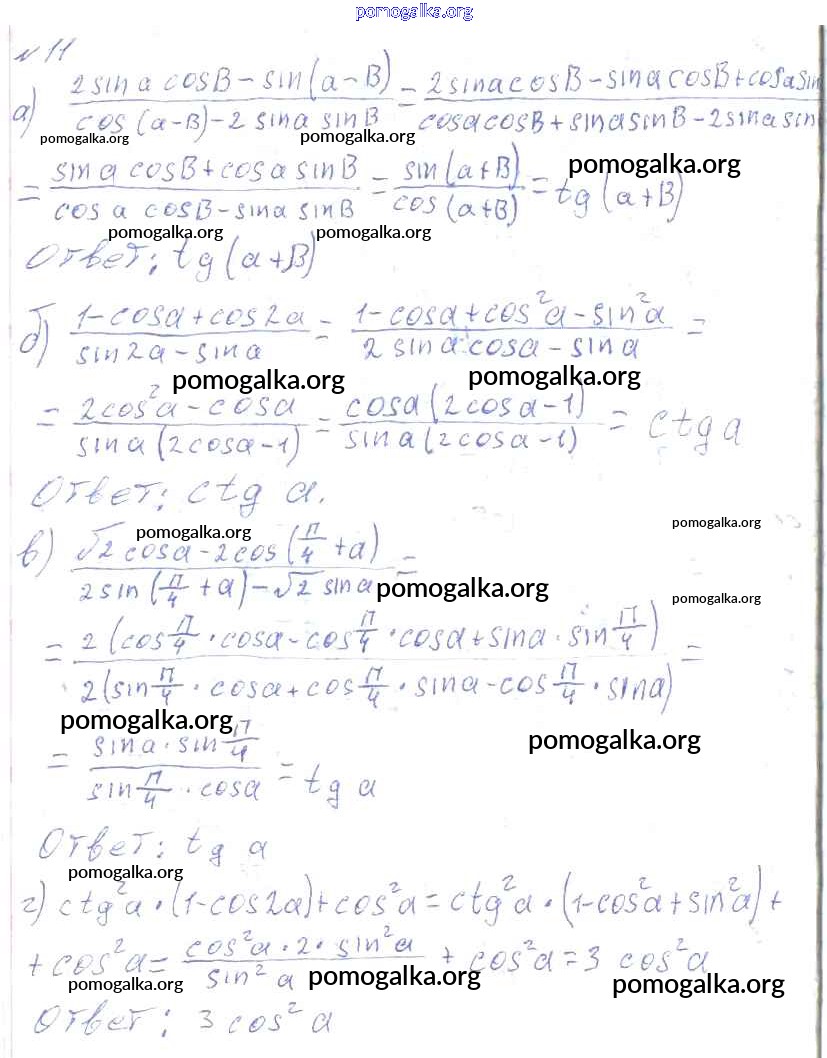 pomogalka.org
№ 11
а) (2 sin a cosB − sin(a−B))/(cos(a−B) − 2 sina sinB) = (2sinacosB − sinacosB + cosasin)/(cosacosB + sinasinB − 2sinasin)
pomogalka.org pomogalka.org
= (sin a cosB + cosa sinB)/(cos a cosB − sina sinB) = sin(a+B)/cos(a+B) = tg(a+B)
pomogalka.org
pomogalka.org pomogalka.org
Ответ: tg(a+B)
б) (1−cosa+cos2a)/(sin2a−sina) = (1−cosa+cos²a−sin²a)/(2sina·cosa−sina) =
pomogalka.org pomogalka.org
= (2cos²a−cosa)/(sina(2cosa−1)) = (cosa(2cosa−1))/(sina(2cosa−1)) = ctg a
Ответ: ctg a.
pomogalka.org pomogalka.org
в) (√2cosa−2cos(π/4+a))/(2sin(π/4+a)−√2 sina) =
pomogalka.org pomogalka.org
= (2(cos π/4·cosa−cos π/4·cosa+sina·sin π/4))/(2(sin π/4·cosa+cos π/4·sina−cos π/4·sina)) =
pomogalka.org pomogalka.org
= (sina·sin π/4)/(sin π/4·cosa) = tg a
Ответ: tg a
pomogalka.org
г) ctg²a·(1−cos2a)+cos²a = ctg²a·(1−cos²a+sin²a)+
+cos²a = (cos²a·2·sin²a)/(sin²a) + cos²a = 3 cos²a
pomogalka.org pomogalka.org pomogalka.org
Ответ: 3cos²a